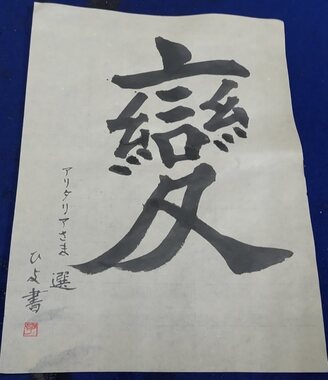 變
アリタリアさま 選
ひよ書